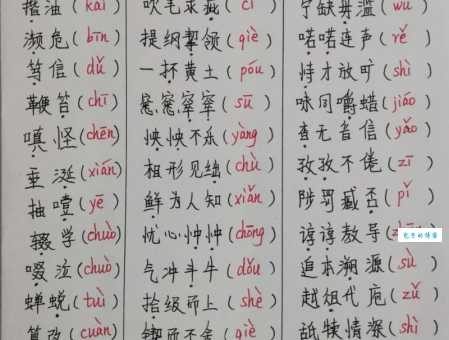 揩油(kāi) 吹毛求疵(cī) 宁缺毋滥(wú)
濒危(bīn) 提纲挈领(qiè) 喏喏连声(rě)
笃信(dǔ) 一抔黄土(póu) 恃才放旷(shì)
鞭笞(chī) 窸窸窣窣(sū) 味同嚼蜡(jiáo)
嗔怪(chēn) 怏怏不乐(yàng) 杳无音信(yǎo)
垂涎(xián) 相形见绌(chù) 孜孜不倦(zī)
抽噎(yē) 鲜为人知(xiǎn) 陟罚臧否(pǐ)
辍学(chuò) 忧心忡忡(chōng) 谆谆教导
啜泣(chuò) 气冲斗牛(dǒu) 追本溯源(sù)
蝉蜕(tuì) 拾级而上(shè) 越俎代庖(zǔ)
篡改(cuàn) 锲而不舍(qiè) 舐犊情深(shì)